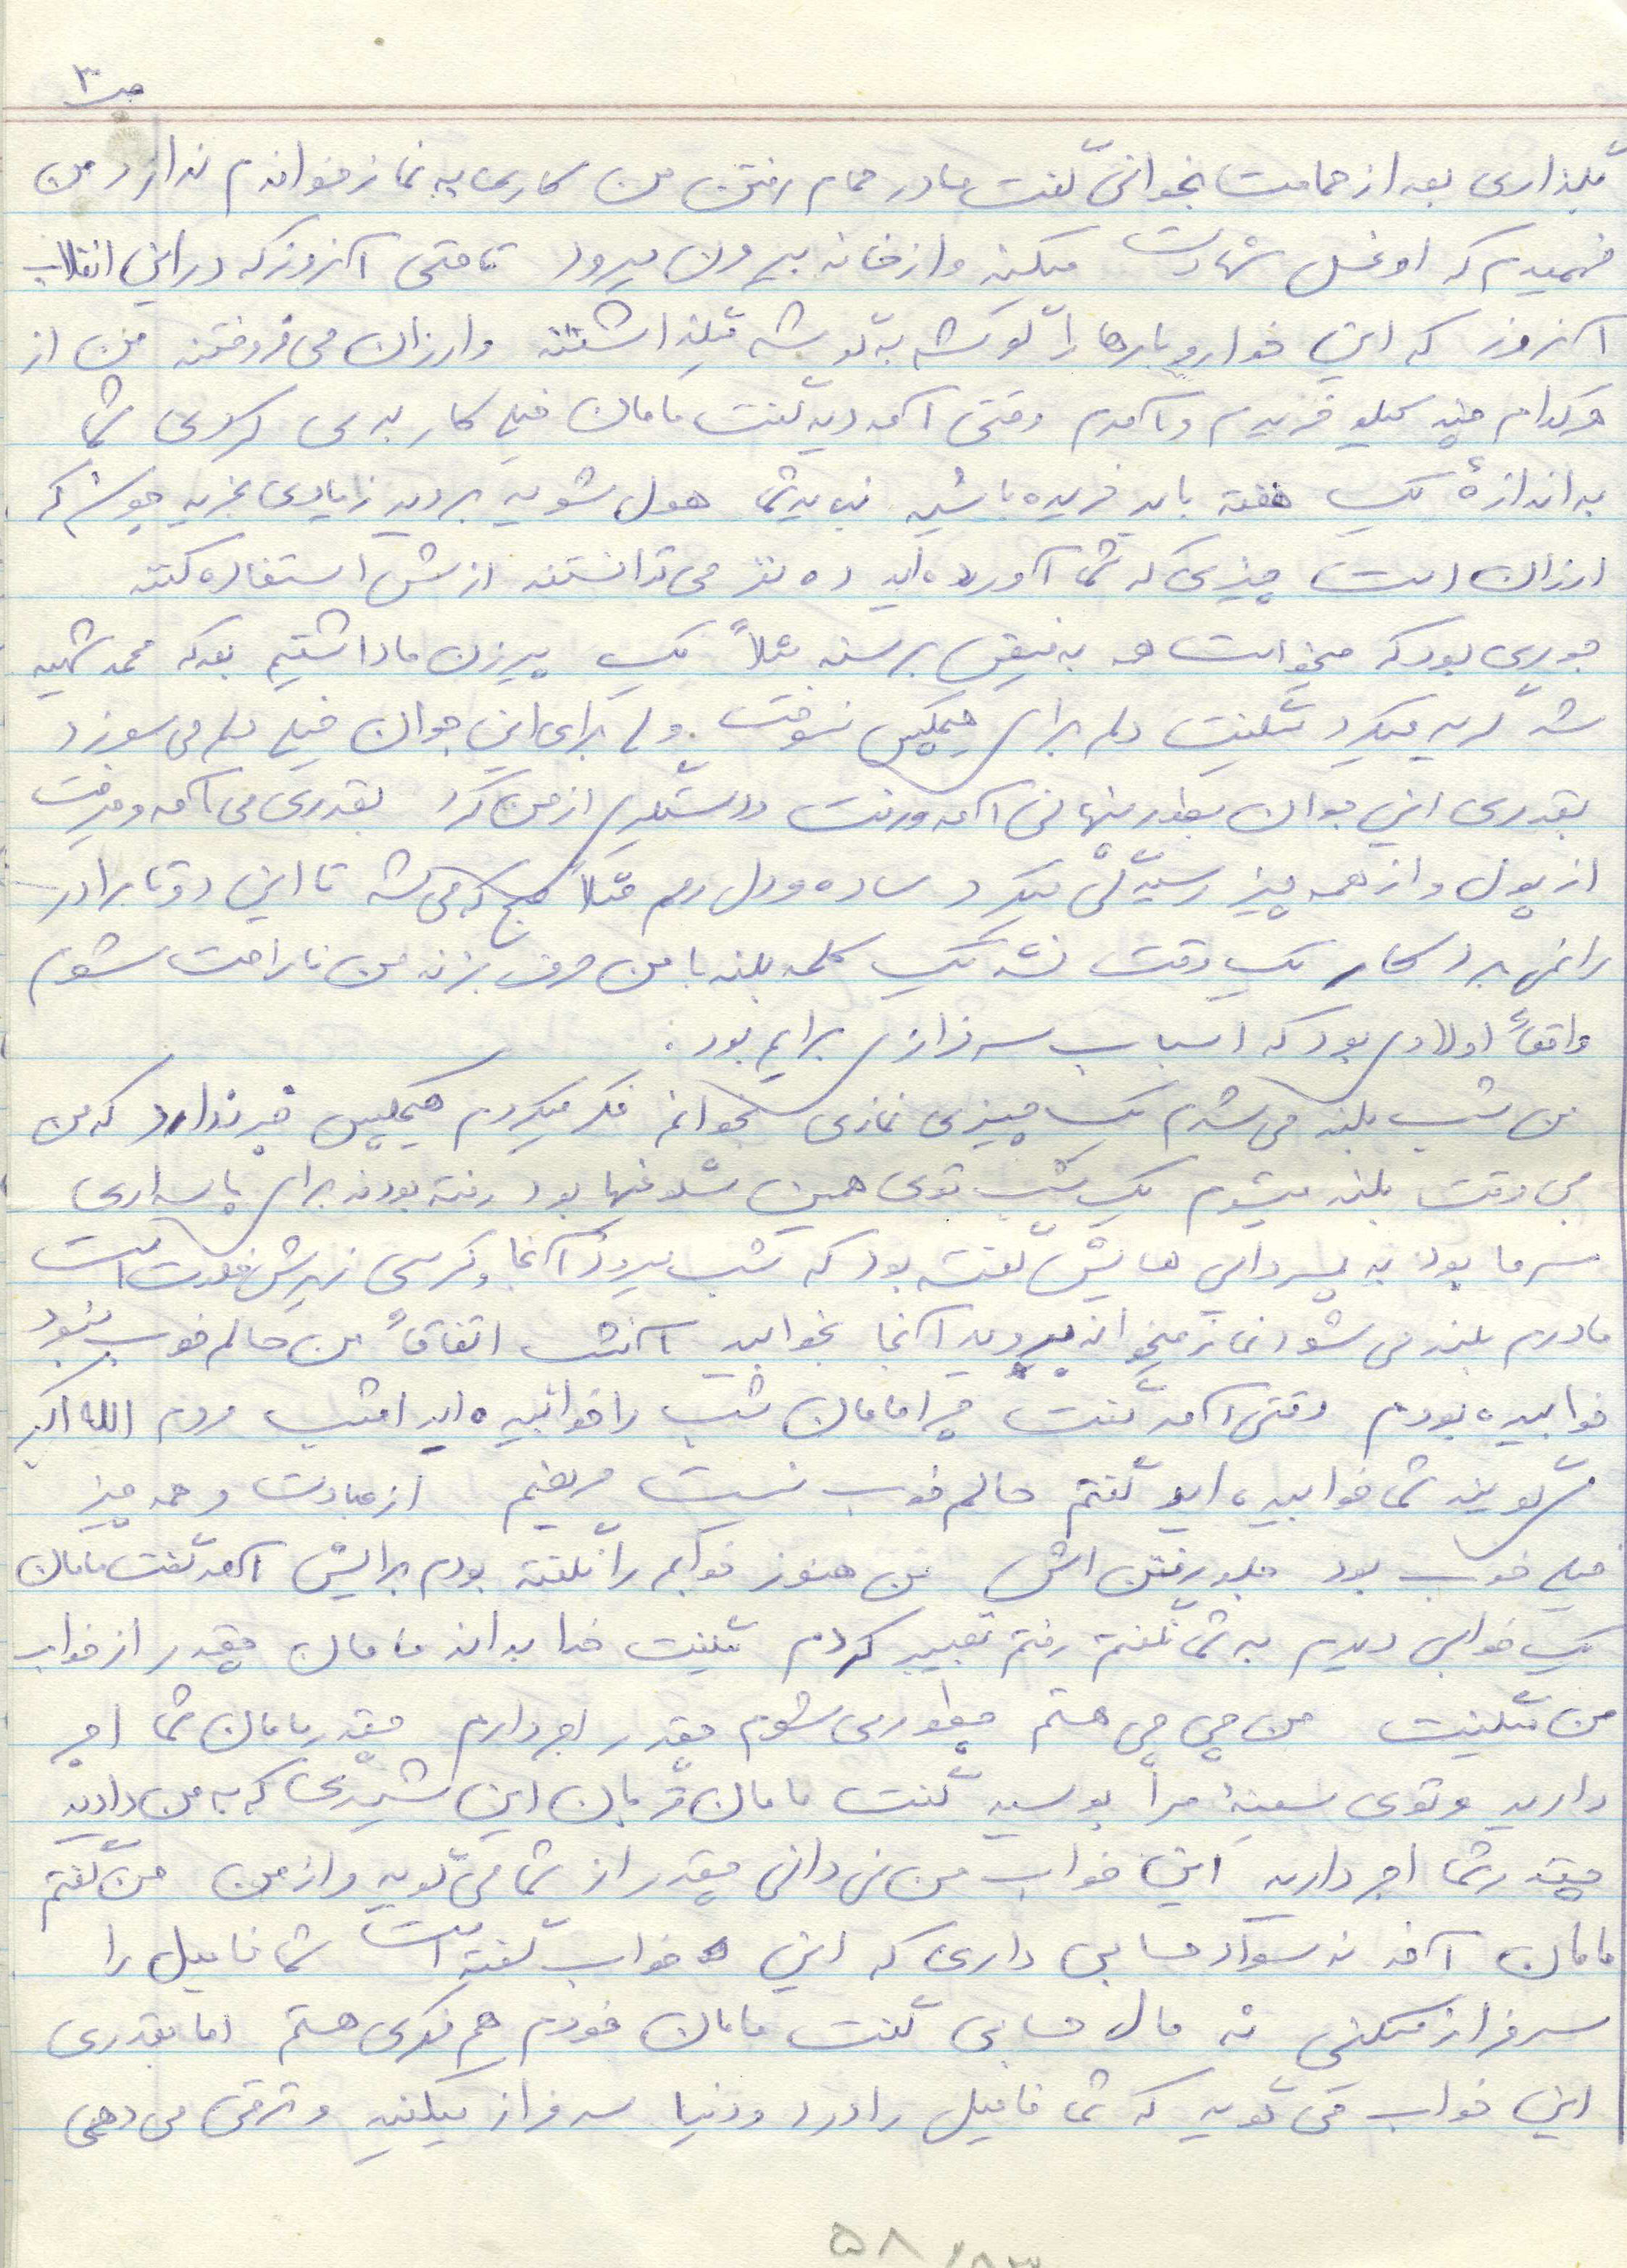 ص ۳
بگذاری بعد از حمامت بخوانی گفت مادر حمام رفتن من کاری به نماز خواندم ندارد من
فهمیدم که او غسل شهادت میکند و از خانه بیرون میرود تا حتی آنروز که در این انقلاب
آنروز که این خواروبارها را گوشه به گوشه میگذاشتند و ارزان می فروختند من از
هرکدام چند کیلو خریدم و آمدم وقتی آمد دید گفت مامان خیلی کار بدی کردی شما
به اندازهٔ یک هفته باید خریده باشید نباید شما هول شوید بروید زیادی بخرید چونکه
ارزان است چیزی که شما آورده اید ده نفر می توانستند ازش استفاده کنند
جوری بود که میخواست همه به فیض برسند مثلاً یک پیرزن ما داشتیم بعد که محمد شهید
شد گریه میکرد میگفت دلم برای هیچکس نسوخت ولی برای این جوان خیلی دلم می سوزد
بقدری این جوان بطور پنهانی آمد و رفت و دستگیری از من کرد بقدری می آمد و میرفت
از پول و از همه چیز رسیدگی میکرد ساده و دل رحم مثلاً صبح که می شد تا این دوتا برادر
را نمی برد سر کار یک وقت نشد یک کلمه بلند با من حرف بزند من ناراحت شوم
واقعاً اولادی بود که اسباب سرفرازی برایم بود.
من شب بلند می شدم یک چیزی نمازی بخوانم فکر میکردم هیچکس خبر ندارد که من
بی وقت بلند میشوم یک شب توی همین شلوغیها بود رفته بودند برای پاسداری
سرما بود به پسر دایی هایش گفته بود که شب بروید آنجا کرسی زیرش خلوت است
مادرم بلند می شود نماز میخواند بروید آنجا بخوابید آنشب اتفاقاً من حالم خوب نبود
خوابیده بودم وقتی آمد گفت چرا مامان شب را خوابیده اید امشب مردم الله اکبر
میگویند شما خوابیده اید گفتم حالم خوب نیست مریضم از عبادت و همه چیز
خیلی خوب بود جلو رفتن اش من هنوز خوابم را نگفته بودم برایش آمد گفت مامان
یک خوابی دیدم به شما نگفتم رفتم تعبیر کردم میگفت خدا بداند مامان چقدر از خواب
من میگفت من چی چی هستم چطوری می شوم چقدر اجر دارم چقدر مامان شما اجر
دارید و توی سینهٔ مرا بوسید گفت مامان قربان این شیری که به من دادید
چقدر شما اجر دارید این خواب من نمی دانی چقدر از شما می گوید و از من من گفتم
مامان آخه نه سواد حسابی داری که این خواب گفته است شما فامیل را
سرفراز میکنی نه مال حسابی گفت مامان خودم هم فکری هستم اما بقدری
این خواب می گوید که شما فامیل را در دو دنیا سرفراز میکنید و ترقی می دهی
۵۸